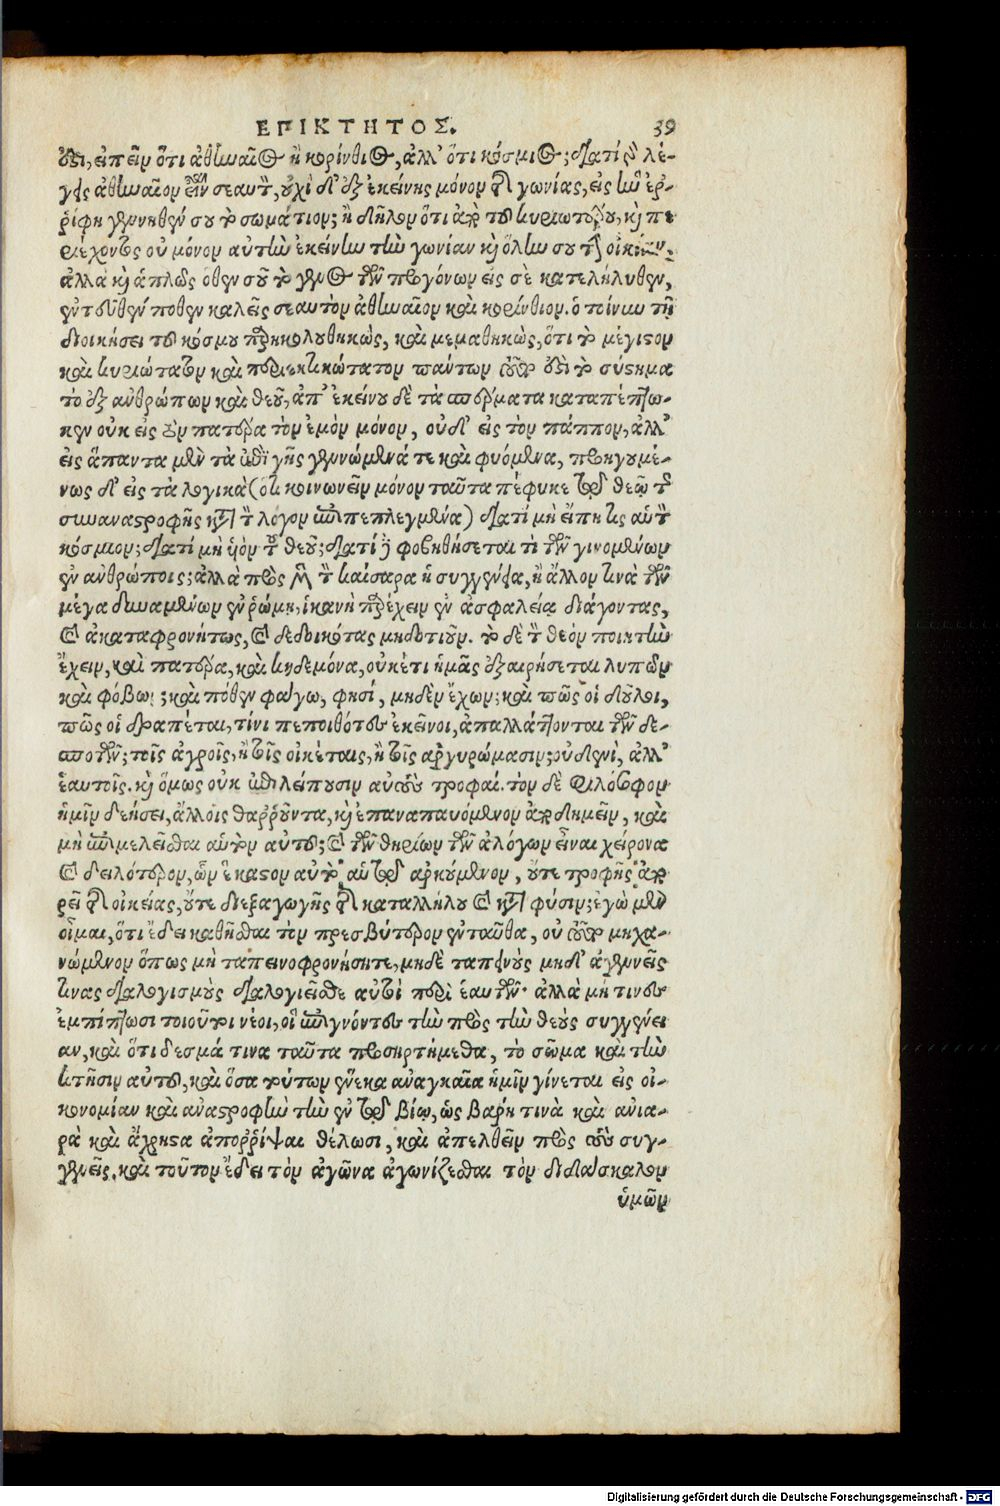 ΕΠΙΚΤΗΤΟΣ. 39
ἐστι, εἰπεῖν ὅτι ἀθηναῖος ἢ κορίνθιος, ἀλλ' ὅτι κόσμιος; διατί γὸ λέ-
γεις ἀθηναῖον εἶναι σεαυτὸν, οὐχὶ δ' ἐξ ἐκείνης μόνον τῆς γωνίας, εἰς ἣν ἐρ-
ρίφη γεννηθὲν σου τὸ σωμάτιον; ἢ δῆλον ὅτι ἀπὸ τοῦ κυριωτέρου, καὶ πε
ριέχοντος οὐ μόνον αὐτὴν ἐκείνην τὴν γωνίαν καὶ ὅλην σου τὴν οἰκίαν,
ἀλλὰ καὶ ἁπλῶς ὅθεν σοῦ τὸ γένος τῶν προγόνων εἰς σὲ κατελήλυθεν,
ἐντεῦθέν ποθεν καλεῖς σεαυτὸν ἀθηναῖον καὶ κορίνθιον. ὁ τοίνυν τῇ
διοικήσει τοῦ κόσμου παρηκολουθηκὼς, καὶ μεμαθηκὼς, ὅτι τὸ μέγιστον
καὶ κυριώτατον καὶ περιεκτικώτατον πάντων οὗτόν ἐστι τὸ σύστημα
τὸ ἐξ ἀνθρώπων καὶ θεοῦ, ἀπ' ἐκείνου δὲ τὰ σπέρματα καταπέπτω-
κεν οὐκ εἰς τὸν πατέρα τὸν ἐμὸν μόνον, οὐδ' εἰς τὸν πάππον, ἀλλ'
εἰς ἅπαντα μὲν τὰ ἐπὶ γῆς γεννώμενά τε καὶ φυόμενα, προηγουμέ-
νως δ' εἰς τὰ λογικὰ (ὅτι κοινωνεῖν μόνον ταῦτα πέφυκε τῷ θεῷ τῆς
συναναστροφῆς κατὰ τὸν λόγον ἐπιπεπλεγμένα) διατί μὴ εἴπῃ τις αὐτὸν
κόσμιον; διατί μὴ υἱὸν τοῦ θεοῦ; διατί δὲ φοβηθήσεταί τι τῶν γινομένων
ἐν ἀνθρώποις; ἀλλὰ πρὸς μὲν τὸν καίσαρα ἡ συγγένεια, ἢ ἄλλον τινὰ τῶν
μέγα δυναμένων ἐν ῥώμῃ, ἱκανὴ παρέχειν ἐν ἀσφαλείᾳ διάγοντας,
καὶ ἀκαταφρονήτως, καὶ δεδοικότας μηδοτιοῦν. τὸ δὲ τὸν θεὸν ποιητὴν
ἔχειν, καὶ πατέρα, καὶ κηδεμόνα, οὐκέτι ἡμᾶς ἐξαιρήσεται λυπῶν
καὶ φόβων; καὶ πόθεν φάγω, φησί, μηδὲν ἔχων; καὶ πῶς οἱ δοῦλοι,
πῶς οἱ δραπέται, τίνι πεποιθότες ἐκεῖνοι, ἀπαλλάττονται τῶν δε-
σποτῶν; τοῖς ἀγροῖς, ἢ τοῖς οἰκέταις, ἢ τοῖς ἀργυρώμασιν; οὐδενὶ, ἀλλ'
ἑαυτοῖς. καὶ ὅμως οὐκ ἐπιλείπουσιν αὐτοὺς τροφαί. τὸν δὲ φιλόσοφον
ἡμῖν δεήσει, ἄλλοις θαρροῦντα, καὶ ἐπαναπαυόμενον ἀποδημεῖν, καὶ
μὴ ἐπιμελεῖσθαι αὐτὸν αὑτοῦ; καὶ τῶν θηρίων τῶν ἀλόγων εἶναι χείρονα
καὶ δειλότερον, ὧν ἕκαστον αὐτὸ αὑτῷ ἀρκούμενον, οὔτε τροφῆς ἀπο
ρεῖ τῆς οἰκείας, οὔτε διεξαγωγῆς τῆς καταλλήλου καὶ κατὰ φύσιν; ἐγὼ μὲν
οἶμαι, ὅτι ἔδει καθῆσθαι τὸν πρεσβύτερον ἐνταῦθα, οὐ τοῦτον μηχα-
νώμενον ὅπως μὴ ταπεινοφρονήσητε, μηδὲ ταπεινοὺς μηδ' ἀγεννεῖς
τινας διαλογισμοὺς διαλογιεῖσθε αὐτοὶ περὶ ἑαυτῶν· ἀλλὰ μή τινες
ἐμπίπτωσι τοιοῦτοι νέοι, οἳ ἐπιγνόντες τὴν πρὸς τοὺς θεοὺς συγγένει
αν, καὶ ὅτι δεσμά τινα ταῦτα προσηρτήμεθα, τὸ σῶμα καὶ τὴν
κτῆσιν αὐτοῦ, καὶ ὅσα τούτων ἕνεκα ἀναγκαῖα ἡμῖν γίνεται εἰς οἰ-
κονομίαν καὶ ἀναστροφὴν τὴν ἐν τῷ βίῳ, ὡς βάρη τινὰ καὶ ἀνια-
ρὰ καὶ ἄχρηστα ἀπορρίψαι θέλωσι, καὶ ἀπελθεῖν πρὸς τοὺς συγ-
γενεῖς. καὶ τοῦτον ἔδει τὸν ἀγῶνα ἀγωνίζεσθαι τὸν διδάσκαλον
ὑμῶν
Digitalisierung gefördert durch die Deutsche Forschungsgemeinschaft - DFG